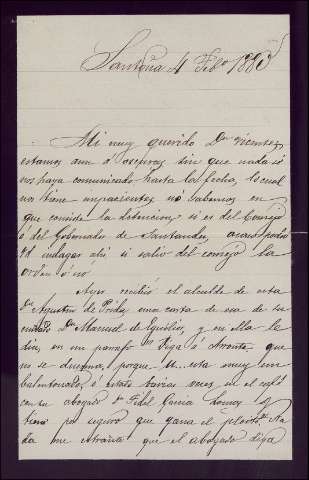 Santoña 4 Febo 1883
Mi muy querido Dn Vicente,
estamos aun á oscuras sin que nada se
nos haya comunicado hasta la fecha, lo cual
nos tiene impacientes no sabemos en
que consiste la detencion, si es del Consejo
ó del Gobernador de Santander, acaso podrá
Vd indagar ahi si salió del consejo la
orden ó no
Ayer recibió el alcalde de esta
Dn Agustin de Prida, una carta de esa de su
Dn Manuel de y en ella le
dice, en un parrafo "Diga á que
no se duerman, porque U. esta muy
ó estado varias veces en el café
con su abogado Dn Fidel Garcia Lomas y
tiene por seguro que gana el pleito". Na
da me estraña que el abogado diga